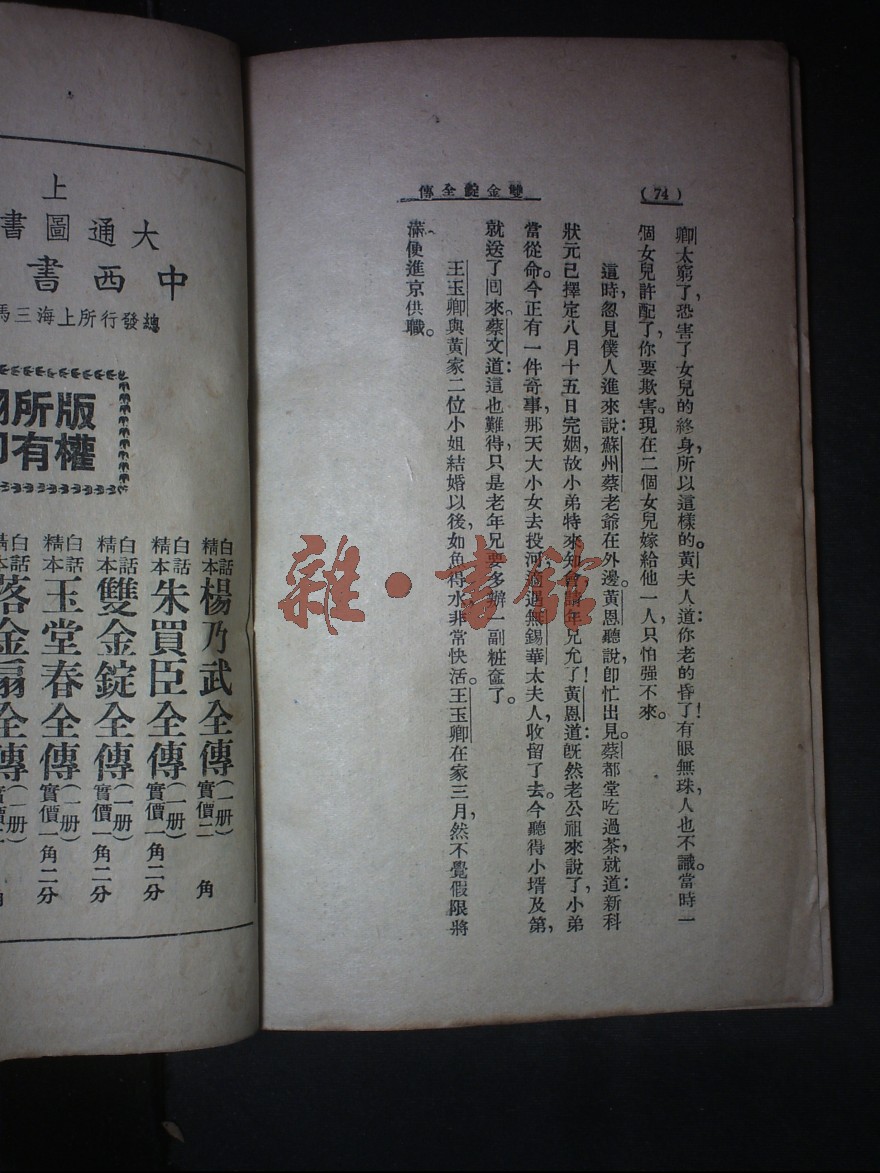 (74)
雙金錠全傳
卿太窮了,恐害了女兒的終身,所以這樣的。黃夫人道:你老的昏了!有眼無珠,人也不識。當時一
個女兒許配了,你要欺害。現在二個女兒嫁給他一人,只怕强不來。
這時,忽見僕人進來說:蘇州蔡老爺在外邊。黃恩聽說,卽忙出見。蔡都堂吃過茶,就道:新科
狀元已擇定八月十五日完姻,故小弟特來知會,請年兄允了!黃恩道:旣然老公祖來說了,小弟
當從命。今正有一件奇事,那天大小女去投河,適遇無錫華太夫人,收留了去。今聽得小壻及第,
就送了囘來。蔡文道:這也難得,只是老年兄要多辦一副粧奩了。
王玉卿與黃家二位小姐結婚以後,如魚得水,非常快活。王玉卿在家三月,然不覺假限將
滿,便進京供職。
雜·書館
上
大通圖書
中西書
總發行所上海三馬
版所
權有
白話精本楊乃武全傳(一册)實價二角
白話精本朱買臣全傳(一册)實價一角二分
白話精本雙金錠全傳(一册)實價一角二分
白話精本玉堂春全傳(一册)實價一角二分
白話精本落金扇全傳(一册)實價